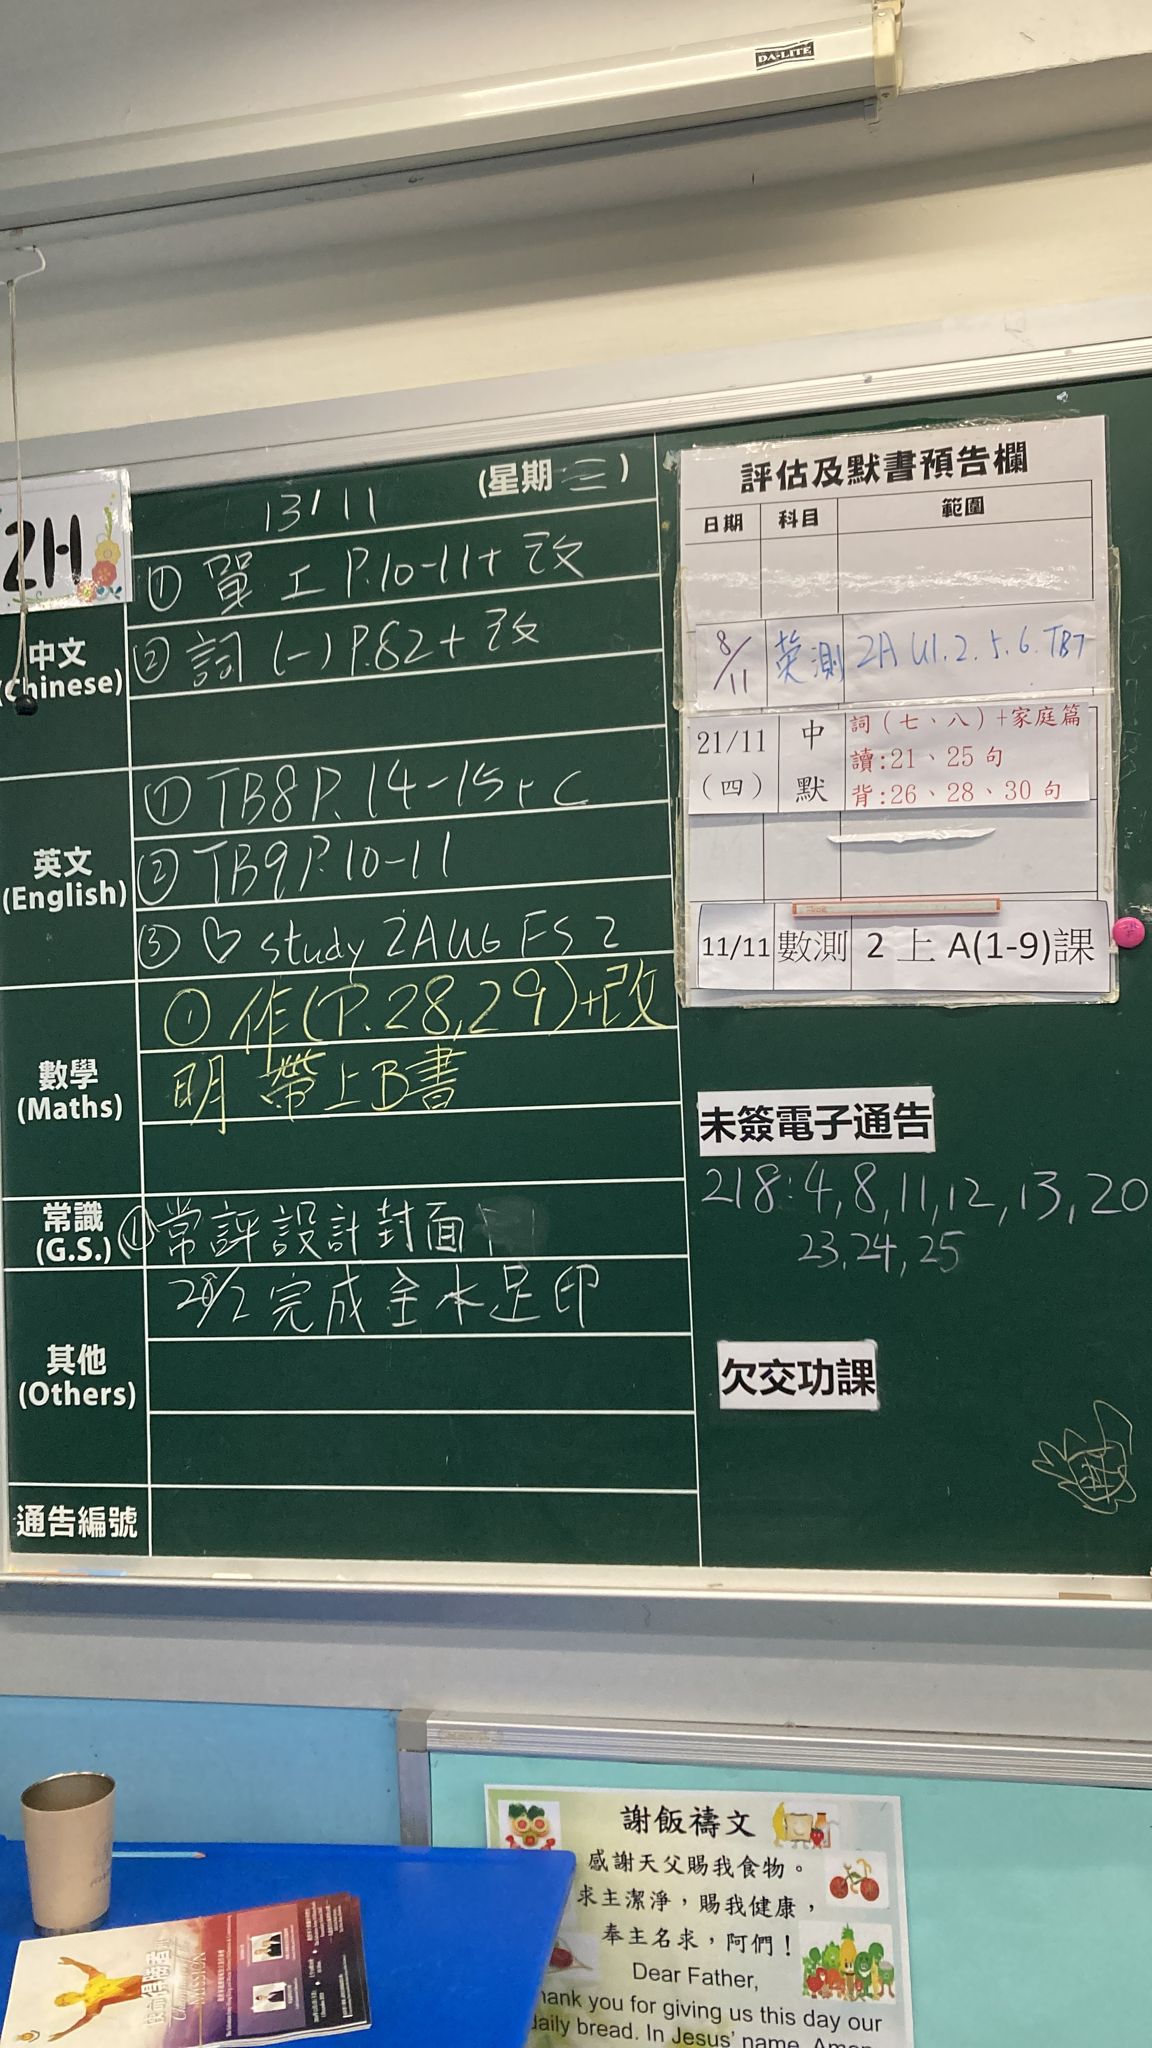 DA-LITE
2H
13/11 (星期三)
中文
(Chinese)
① 單工 P.10-11+改
② 詞(一) P.82+改
英文
(English)
① TB8 P.14-15+C
② TB9 P.10-11
③ ♡ study 2A U6 FS 2
數學
(Maths)
① 作(P.28,29)+改
明帶上B書
常識
(G.S.)
① 常評設計封面
其他
(Others)
28/2 完成金水足印
通告編號
評估及默書預告欄
日期 科目 範圍
8/11 英測 2A U1.2.5.6.TB7
21/11 (四) 中默 詞(七、八)+家庭篇
讀:21、25句
背:26、28、30句
11/11 數測 2上A(1-9)課
未簽電子通告
218:4,8,11,12,13,20
23,24,25
欠交功課
謝飯禱文
感謝天父賜我食物。
求主潔淨,賜我健康,
奉主名求,阿們!
Dear Father,
hank you for giving us this day our
daily bread. In Jesus' name, Amen
MISSION